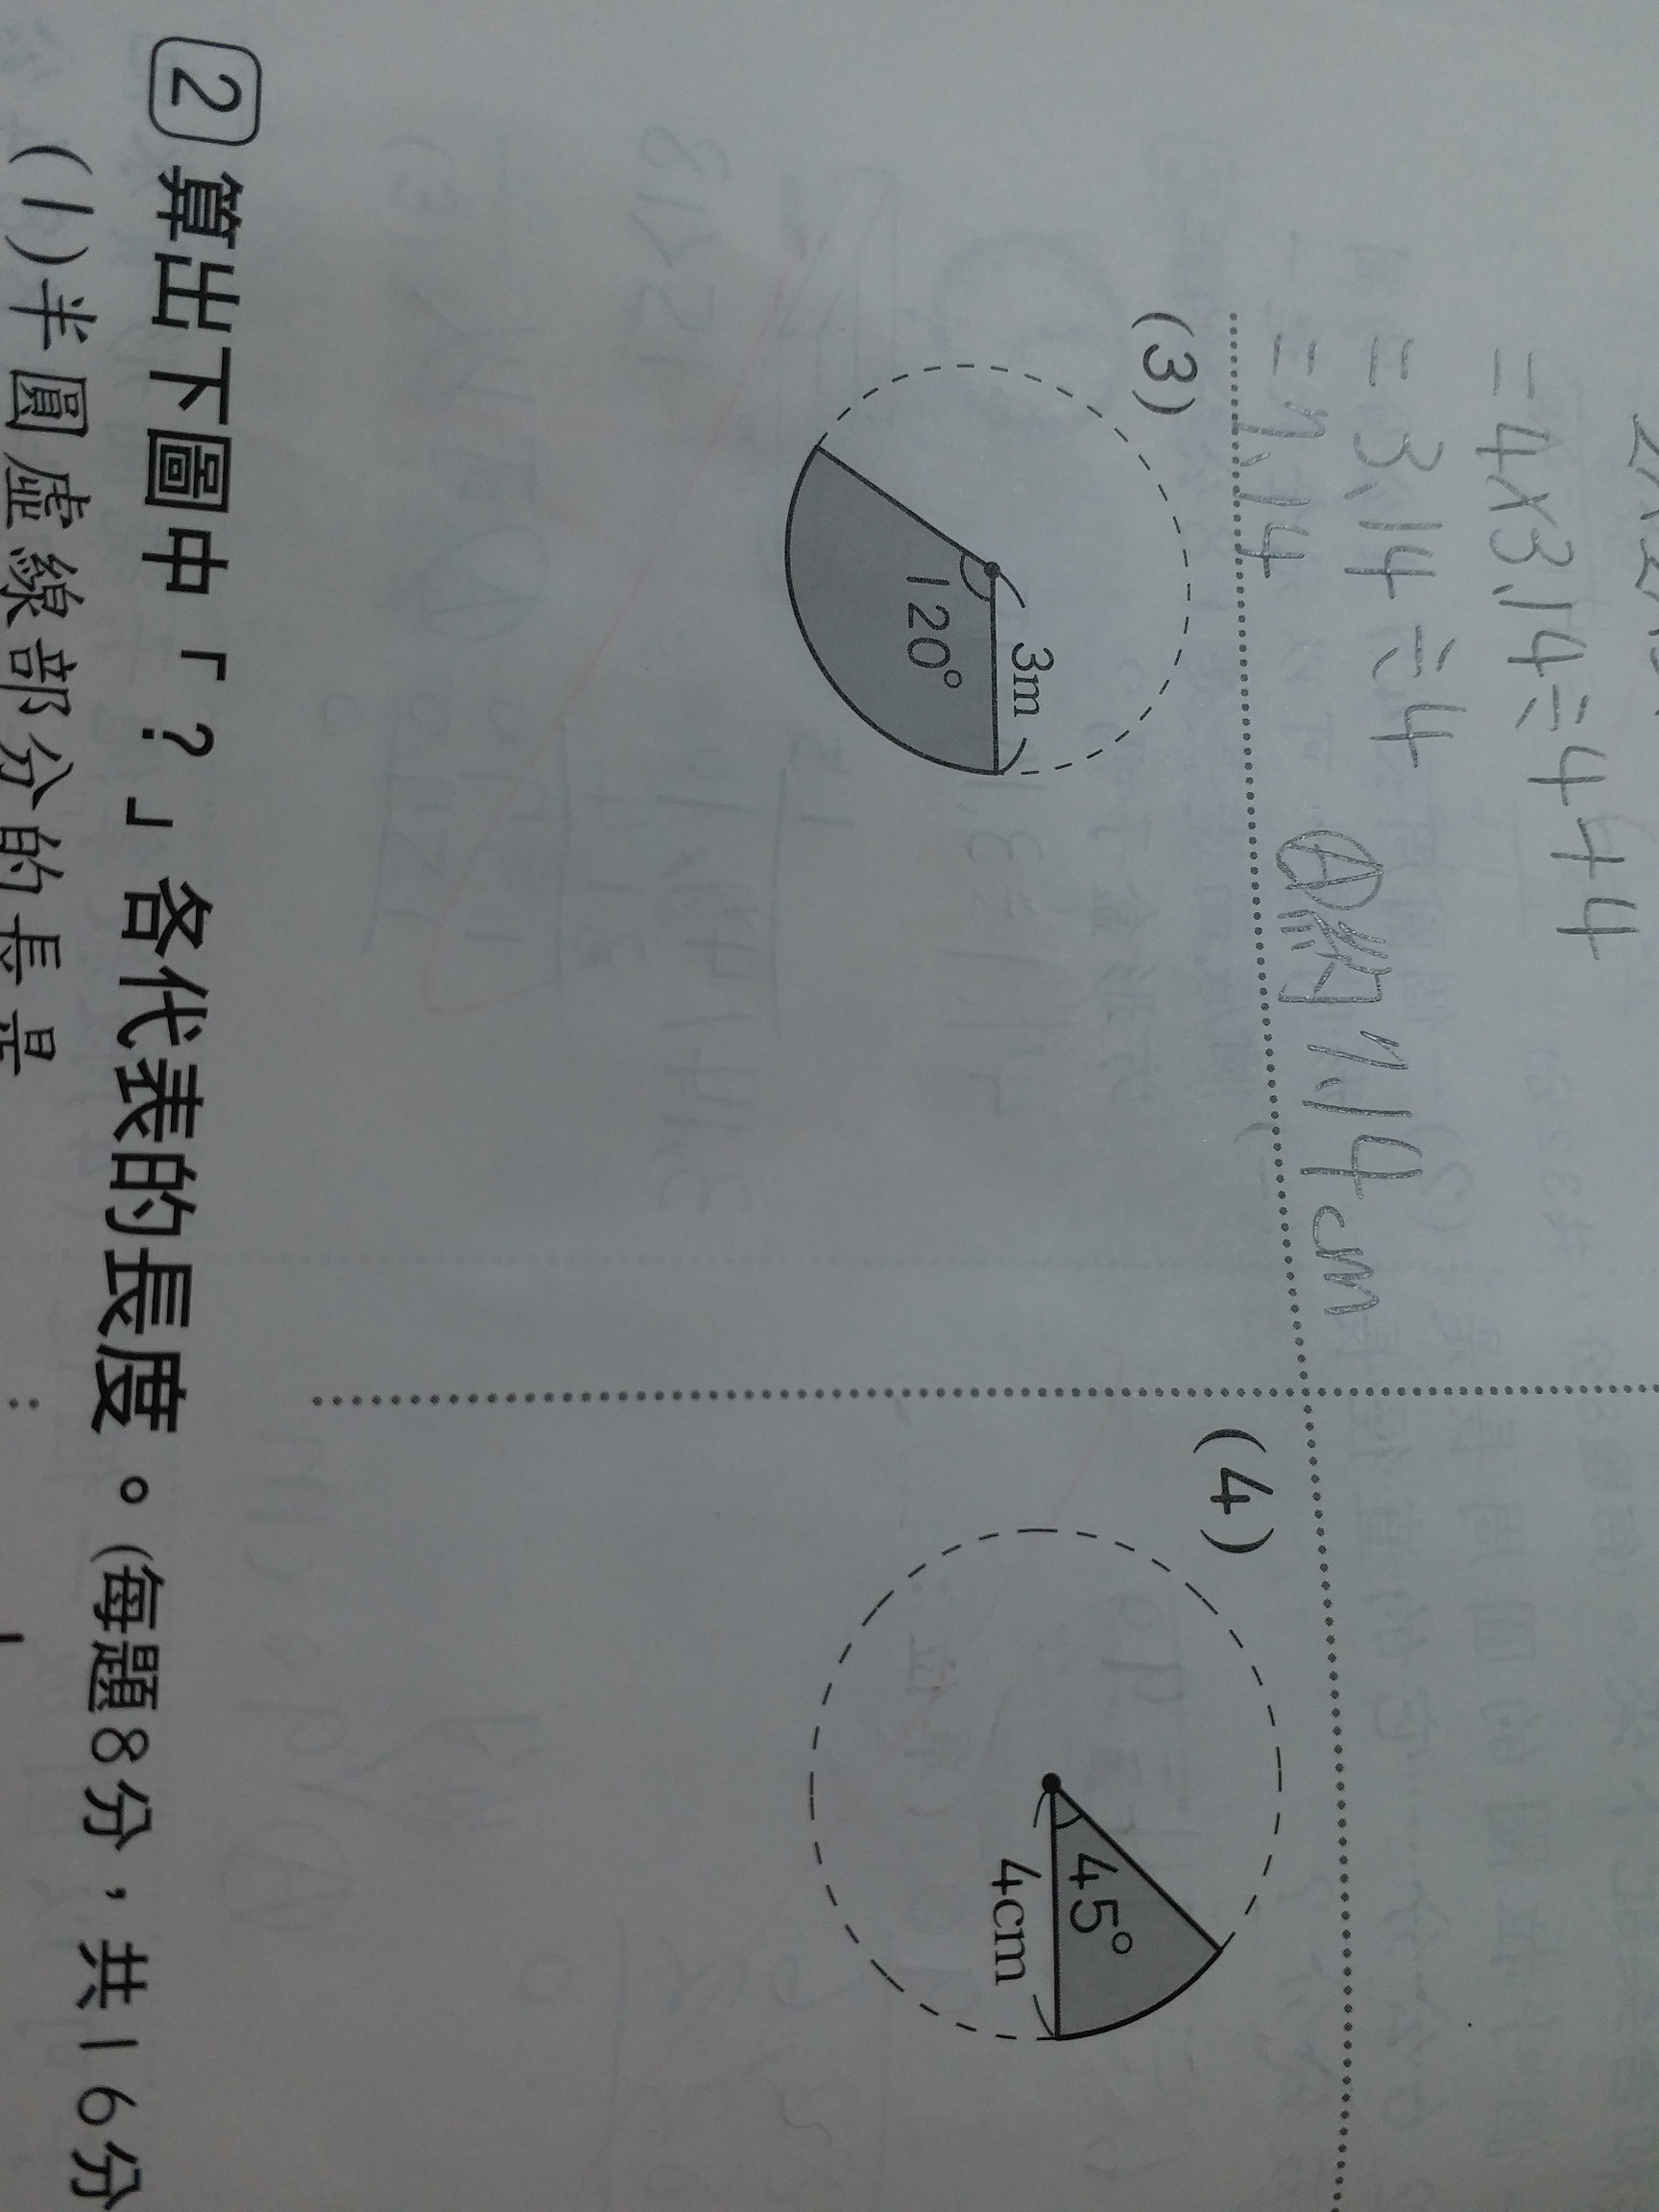 =4×3.14÷4+4
=3.14÷4
=7.14
Ⓐ約7.14cm
(3)
3m
120°
(4)
45°
4cm
2 算出下圖中「?」各代表的長度。(每題8分，共16分
(1)半圓虛線部分的長是